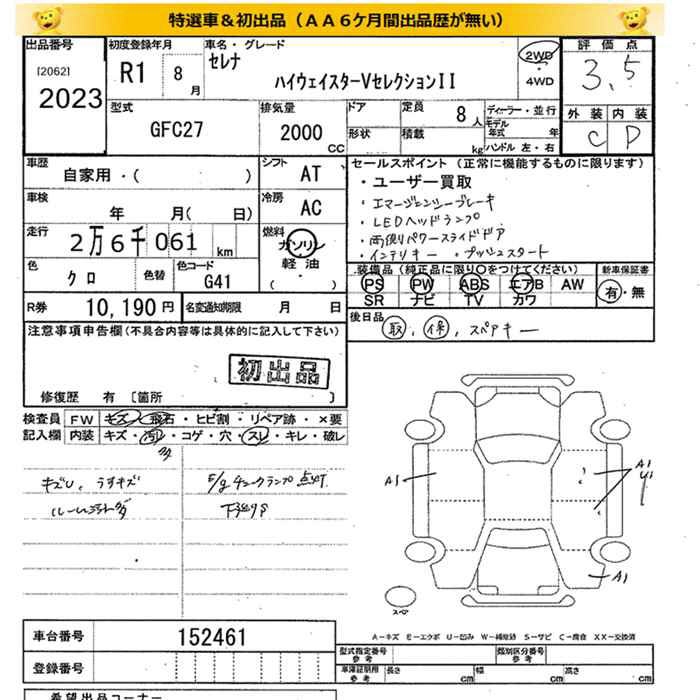 特選車＆初出品（ＡＡ６ケ月間出品歴が無い）
出品番号 初度登録年月 車名・グレード 評価点
[2062] R1 8月 セレナ 2WD 3.5
2023 ハイウェイスターVセレクションII ・4WD
型式 排気量 ドア 定員 8人 ディーラー・並行 外装 内装
GFC27 2000cc 形状 積載 kg モデル年式 年 C D
ハンドル 左・右
車歴 シフト セールスポイント（正常に機能するものに限ります）
自家用・( ) AT ・ユーザー買取
車検 冷房 ・エマージェンシーブレーキ
年 月( 日) AC ・LEDヘッドランプ
走行 燃料 ・両側パワースライドドア
2万6千061km ガソリン ・インテリキー ・プッシュスタート
軽油
( )
色 色替 色コード 装備品（純正品に限り○をつけてください） 新車保証書
クロ G41 PS PW ABS エアB AW 有・無
SR ナビ TV カワ
R券 10,190円 名変通知期限 月 日 後日品
取、保、スペアキー
注意事項申告欄(不具合内容等は具体的に記入して下さい)
初出品
修復歴 有〔箇所 〕
検査員 FW キズ・飛石・ヒビ割・リペア跡・×要
記入欄 内装 キズ・汚れ・コゲ・穴・スレ・キレ・破レ
多
キズU、うすキズ E/gチェックランプ点灯
下廻りS
A1 A1
U1
A1
スペア
A－キズ E－エクボ U－凹み W－補修跡 S－サビ C－腐食 XX－交換済
車台番号 152461 型式指定番号 参考 類別区分番号 参考
登録番号 車庫証明用 参考 長さ cm 幅 cm 高さ cm
希望出品コーナー